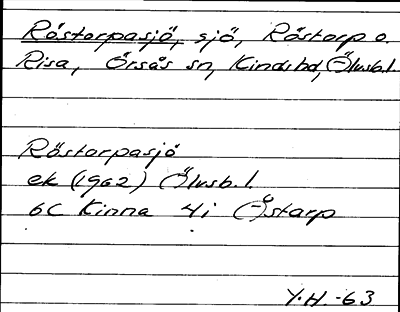 Röstorpasjö, sjö, Röstorp o.
Risa, Örsås sn, Kinds hd, Älvsb.l.
Röstorpasjö
ek (1962) Älvsb.l.
6C Kinna 4i (-Åstarp
Y.H. -63